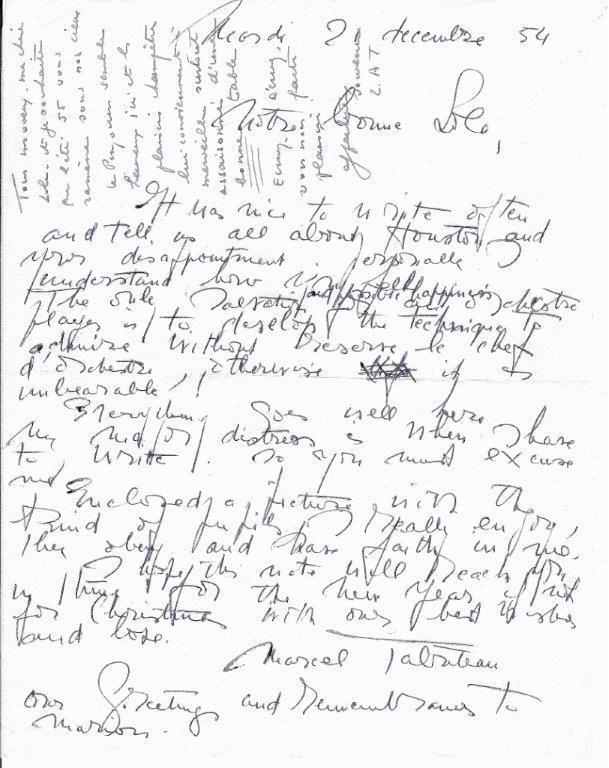 2 decembre 54
Notre Bonne Lola,
It was nice to write often
and tell us all about Houston and
your disappointment. I personally
understand how you felt
The only salvation and possible happiness
of an orchestra
player is to develop the technique to
admire without reserve le chef
d'orchestre, otherwise it is
unbearable!!
Everything goes well here
my major distress is when I have
to write! so you must excuse
me
Enclosed a picture with the
kind of pupils I really enjoy,
they obey and have faith in me.
I hope this note will reach you
in time for the new year if not
for Christmas with our best wishes
and love.
Marcel Tabuteau
our Greetings and Remembrances to
Marion.
ma chère
Lola et je souhaite
que l'été 55 vous
ramène sous nos cieux
le Puy
et les
plaisirs champêtres
lui conviennent à
merveille surtout
assaisonnés d'une
bonne table
vous nous
plaisir
L.A.T.